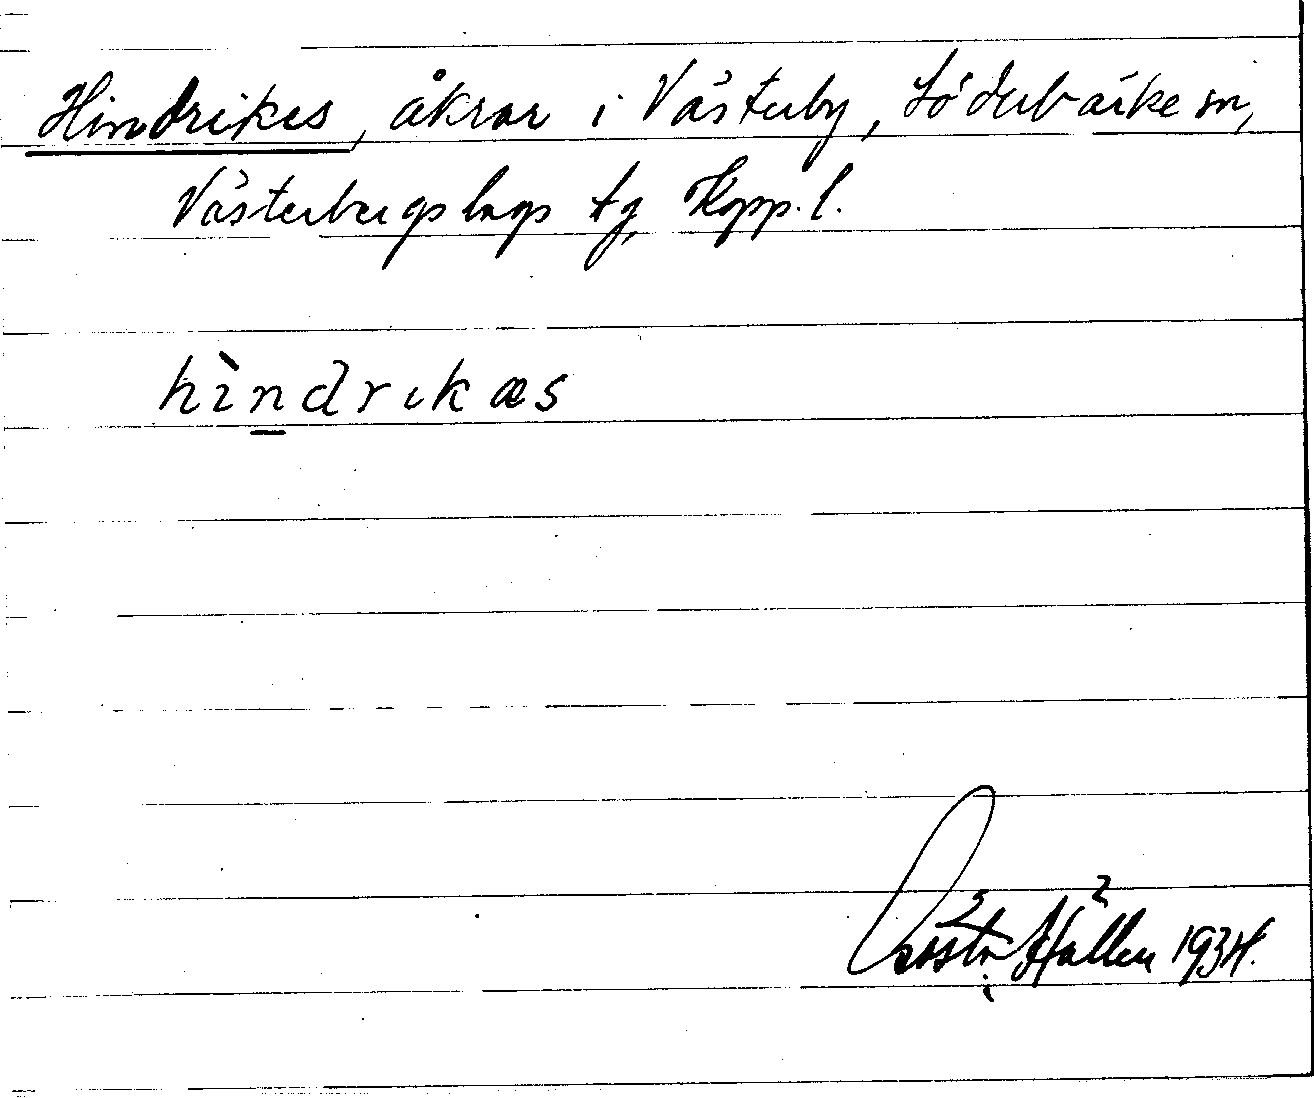 Hindrikes, åkrar i Västerby, Söderbärke sn,
Västerbergslags tg, Kopp. l.
hìndrikæs
Gösta Hällen 1934.